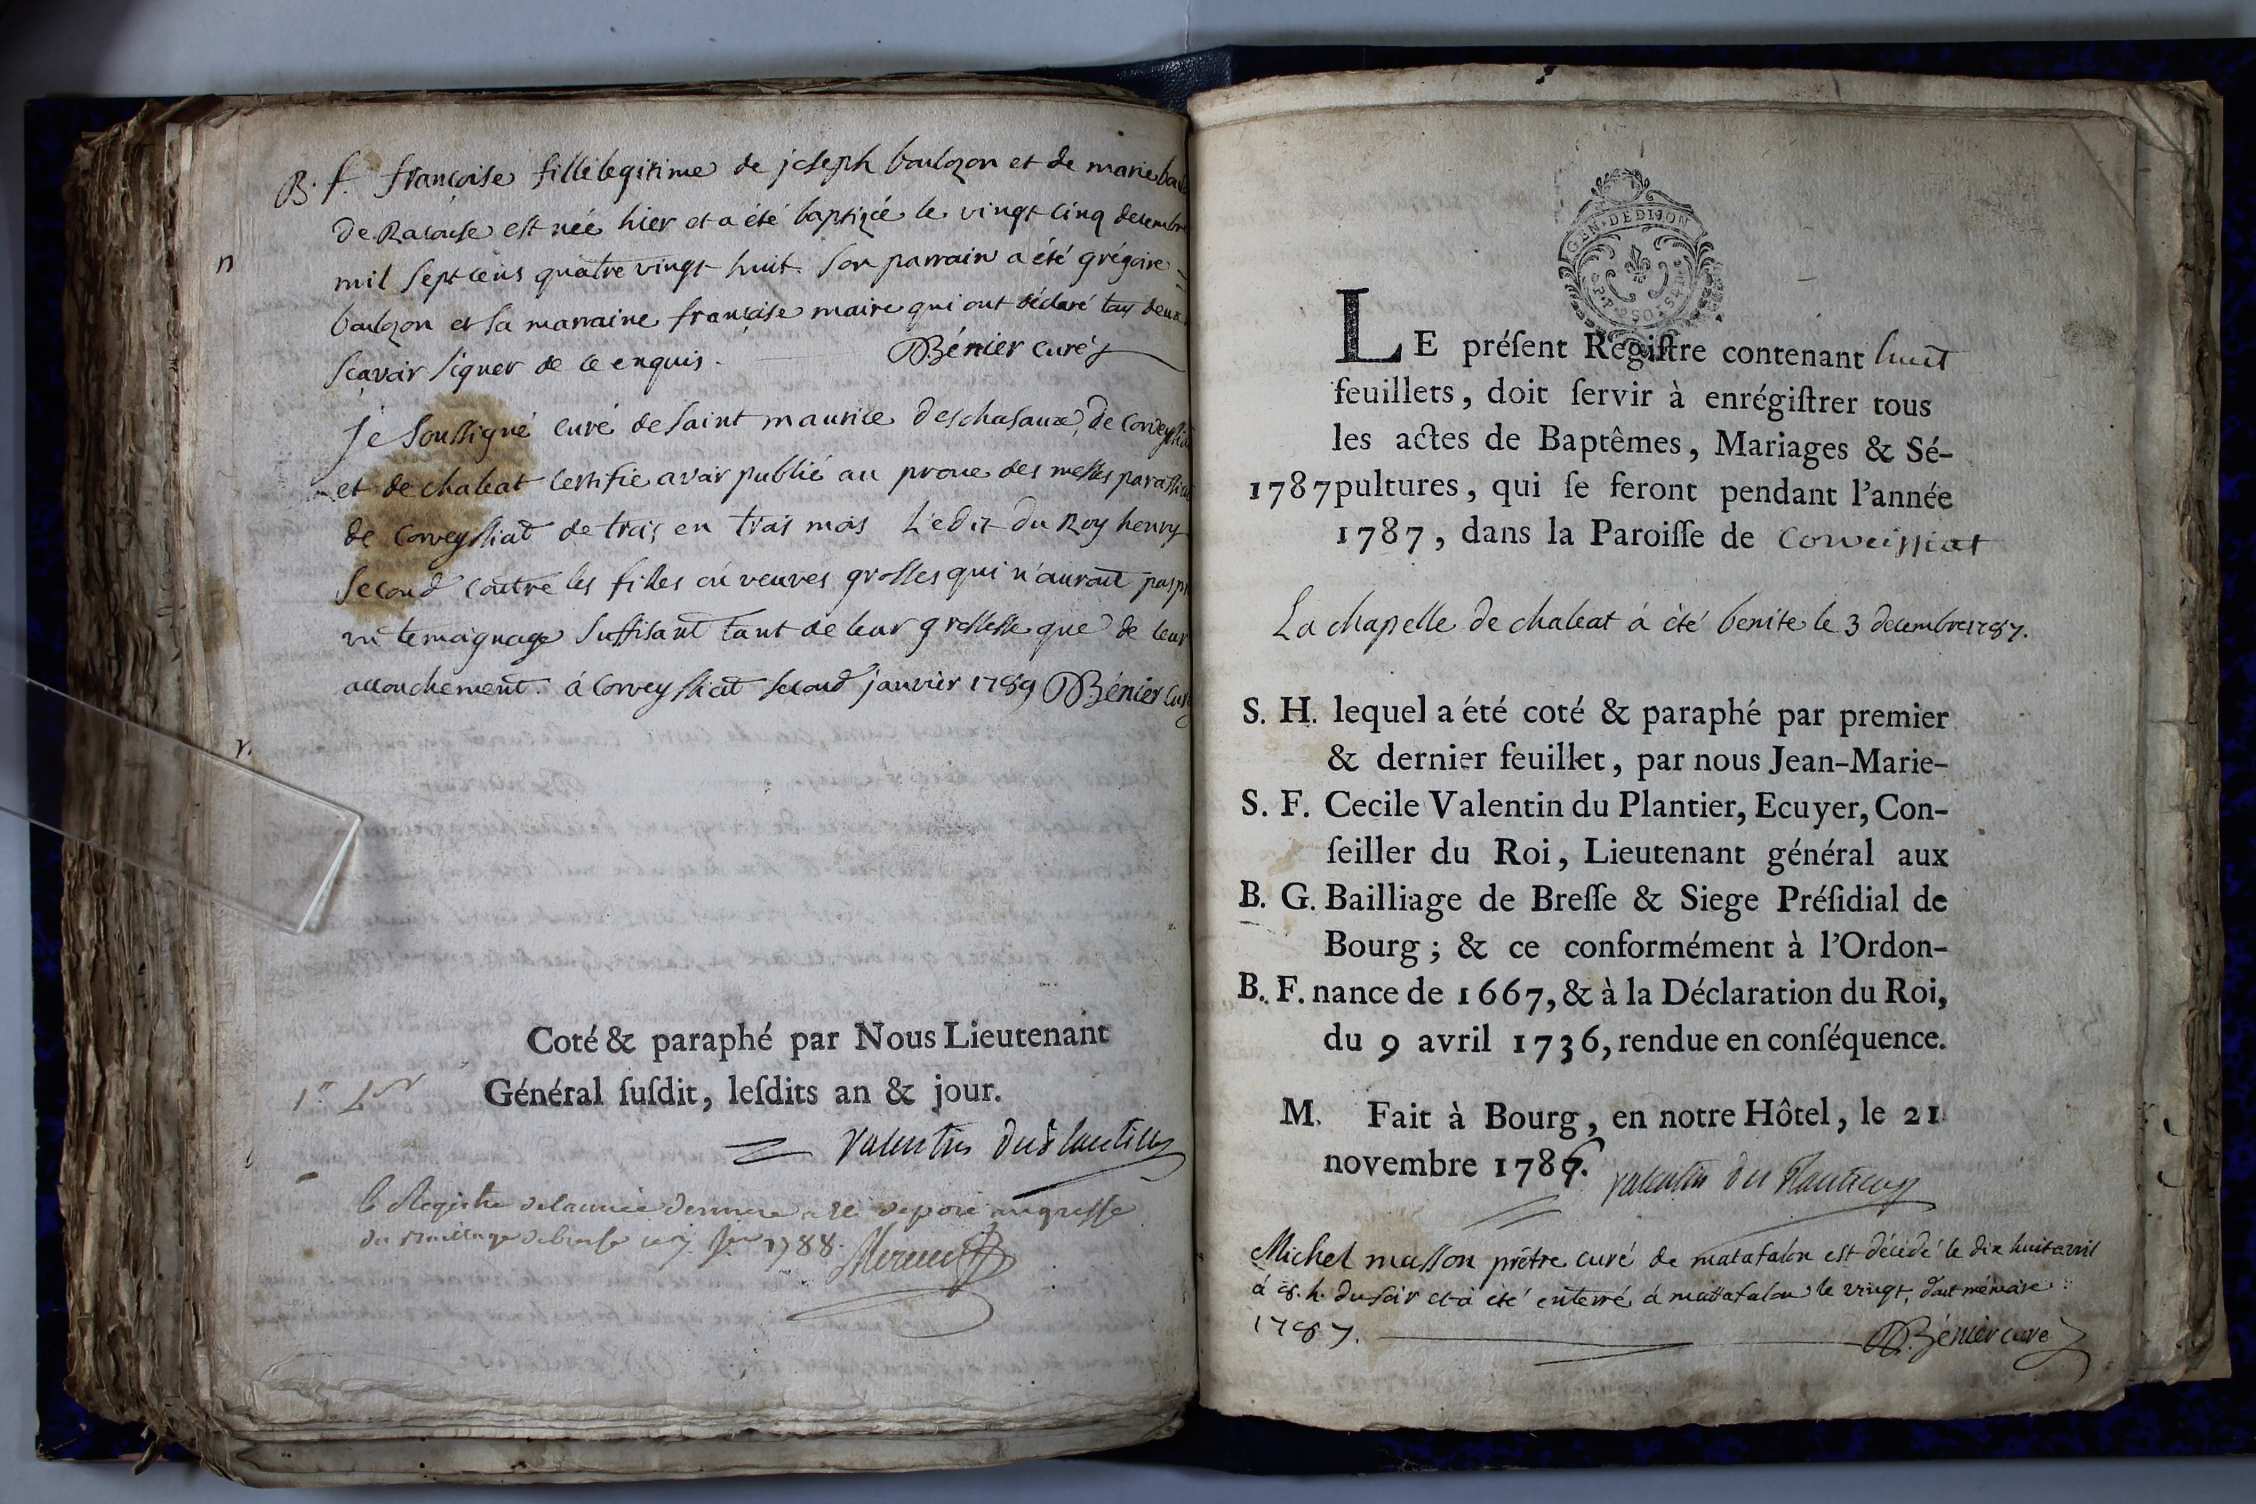 B. f. francoise fille legitime de joseph boulozon et de marie
de Racouse est née hier et a été baptizée le vingt cinq decembre
n
mil sept cens quatre vingt huit. Son parrain a été grégoire
boulozon et sa marraine françoise maire qui ont déclaré tous deux
sçavoir signer de ce enquis. Bénier curé
je soussigné curé de saint maurice deschasaux, de Corveyssiat
et de chaleat certifie avoir publié au prone des messes
de Corveyssiat de trois en trois mois L'edit du Roy henry
second contre les filles où veuves grosses qui n'auront pas
un temoignage suffisant tant de leur grossesse que de leur
accouchement. à Corveyssiat second janvier 1789 Bénier curé
Coté & paraphé par Nous Lieutenant
Général ſuſdit, leſdits an & jour.
valentin duplantier
le Registre de l'année derniere a été deposé au greffe
du Bailliage de bresse ce 1788.
GEN. DE DIJON
LE préſent Regiſtre contenant huit
feuillets, doit ſervir à enrégiſtrer tous
les actes de Baptêmes, Mariages & Sé-
1787 pultures, qui ſe feront pendant l'année
1787, dans la Paroiſſe de Corveissiat
La chapelle de chaleat à été benite le 3 decembre 1787.
S. H. lequel a été coté & paraphé par premier
& dernier feuillet, par nous Jean-Marie-
S. F. Cecile Valentin du Plantier, Ecuyer, Con-
ſeiller du Roi, Lieutenant général aux
B. G. Bailliage de Breſſe & Siege Préſidial de
Bourg ; & ce conformément à l'Ordon-
B. F. nance de 1667, & à la Déclaration du Roi,
du 9 avril 1736, rendue en conſéquence.
M. Fait à Bourg, en notre Hôtel, le 21
novembre 1786. valentin du Plantier
Michel masson prêtre curé de matafalon est décédé le dix huit avril
à 8. h. du soir et à été enterré à matafalon le vingt, dont mémoire
1787. Bénier curé